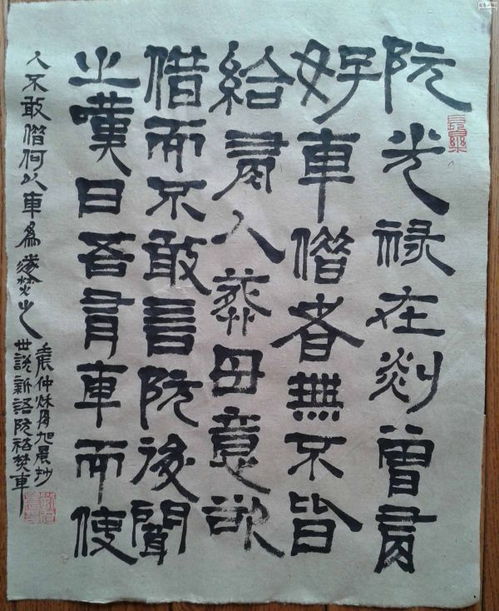 阮光祿在剡曾有
好車借者無不皆
給有人葬母意欲
借而不敢言阮後聞
之嘆曰吾有車而使
人不敢借何以車爲遂焚之
壬辰仲秋月旭晨抄
世說新語阮裕焚車